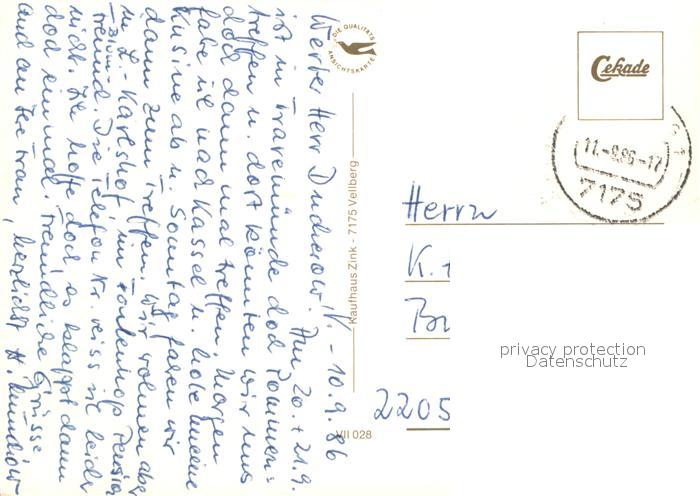 V. - 10.9.86
Werter Herr Am 20. + 21.9.
ist in Travemünde doch Pommern-
treffen u. dort könnten wir uns
doch dann mal treffen. Morgen
fahre ich nach Kassel u. hole meine
Kusine ab u. Sonntag fahren wir
dann zum Treffen. Wir wohnen aber
in L.-Karlshof, im Pension
freund. Die Telefon Nr. weiss ich leider
nicht. Ich hoffe doch es klappt dann
doch einmal. Freundliche Grüsse
auch an Ihre Frau, herzlichst H.
DIE QUALITÄTS
ANSICHTSKARTE
Kaufhaus Zink - 7175 Vellberg
VII 028
Cekade
11.-9.86-17
7175
Herrn
K.
2205
privacy protection
Datenschutz